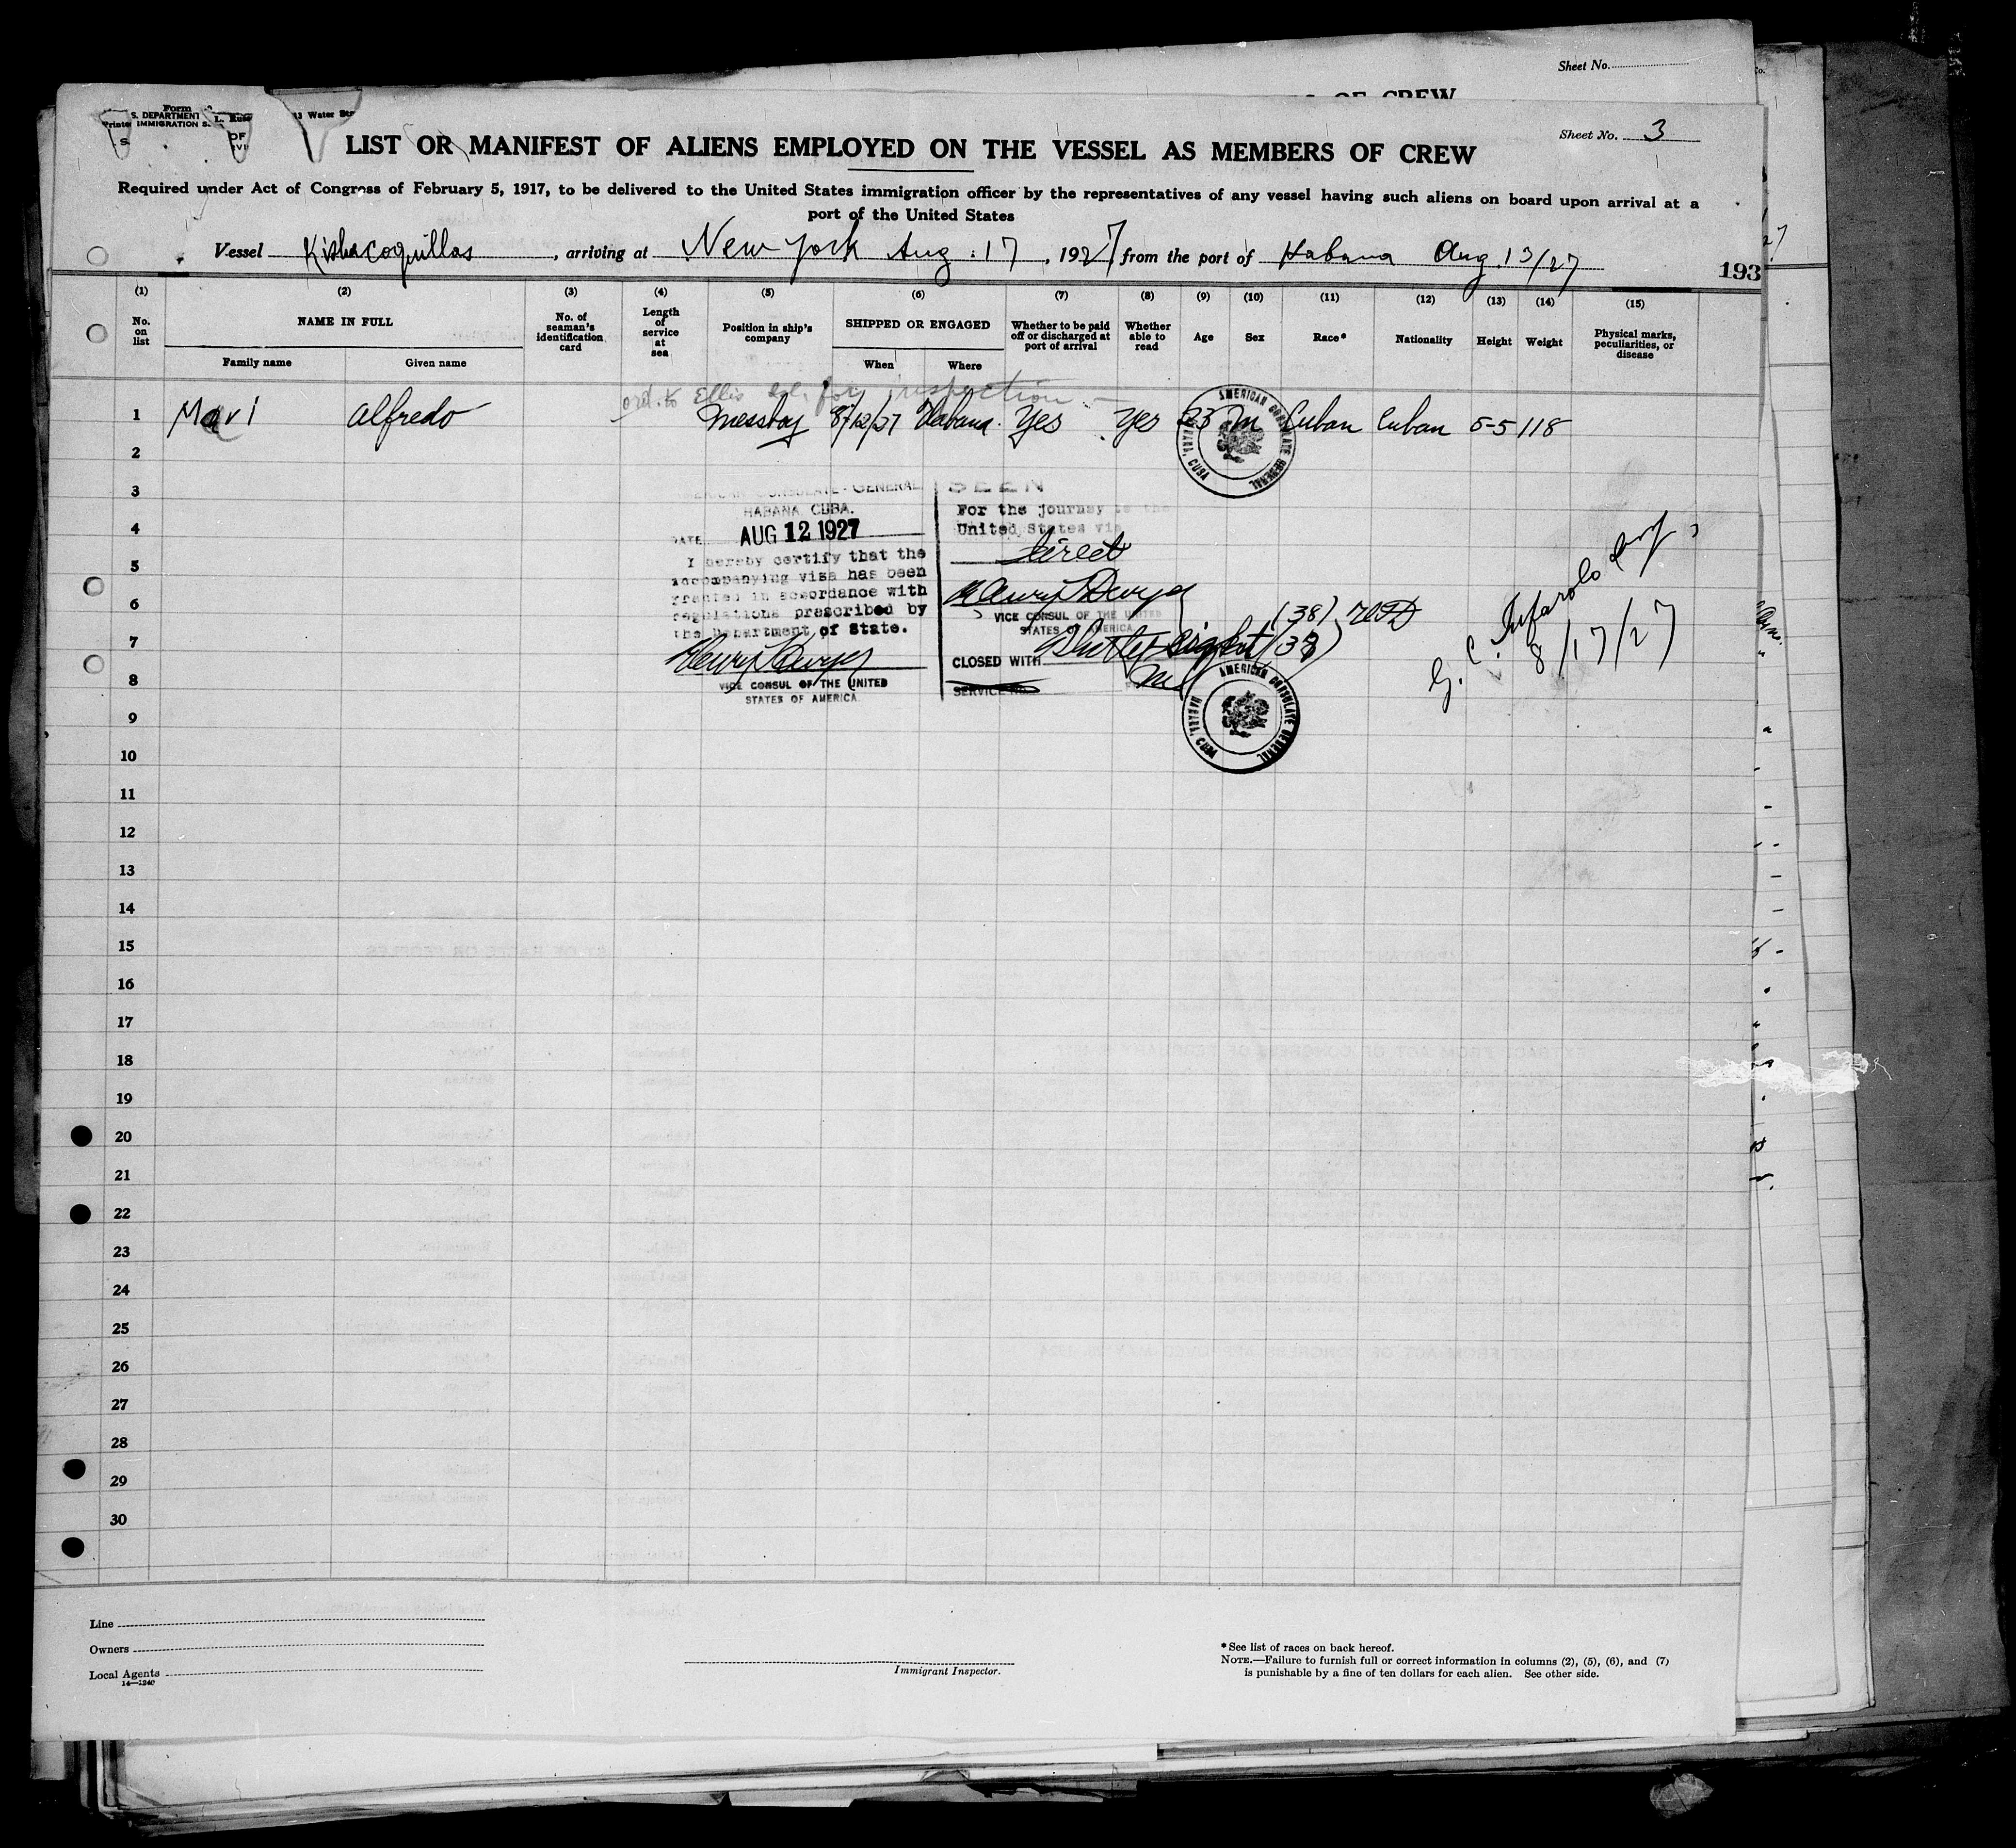 Sheet No.
OF CREW
Form
S. DEPARTMENT
IMMIGRATION S.
Sheet No. 3
LIST OR MANIFEST OF ALIENS EMPLOYED ON THE VESSEL AS MEMBERS OF CREW
Required under Act of Congress of February 5, 1917, to be delivered to the United States immigration officer by the representatives of any vessel having such aliens on board upon arrival at a
port of the United States
Vessel Kishacoquillas, arriving at New York Aug 17, 1927 from the port of Habana Aug. 13/27
193
(1) (2) (3) (4) (5) (6) (7) (8) (9) (10) (11) (12) (13) (14) (15)
No. on list
NAME IN FULL
Family name Given name
No. of seaman's identification card
Length of service at sea
Position in ship's company
SHIPPED OR ENGAGED
When Where
Whether to be paid off or discharged at port of arrival
Whether able to read
Age
Sex
Race*
Nationality
Height
Weight
Physical marks, peculiarities, or disease
ord. to Ellis Isl. for inspection
1 Mari Alfredo Messboy 8/12/27 Habana Yes Yes 23 M Cuban Cuban 5-5 118
AMERICAN CONSULATE GENERAL
HABANA, CUBA
2
3
4
5
6
7
8
9
10
11
12
13
14
15
16
17
18
19
20
21
22
23
24
25
26
27
28
29
30
AMERICAN CONSULATE-GENERAL
HABANA, CUBA.
DATE AUG 12 1927
I hereby certify that the
accompanying visa has been
granted in accordance with
regulations prescribed by
the Department of State.
VICE CONSUL OF THE UNITED
STATES OF AMERICA
SEEN
For the journey to the
United States via
direct
VICE CONSUL OF THE UNITED
STATES OF AMERICA
CLOSED WITH
SERVICE NO.
AMERICAN CONSULATE GENERAL
HABANA, CUBA
8/17/27
Line
Owners
Local Agents
14—1240
Immigrant Inspector.
*See list of races on back hereof.
NOTE.—Failure to furnish full or correct information in columns (2), (5), (6), and (7)
is punishable by a fine of ten dollars for each alien. See other side.